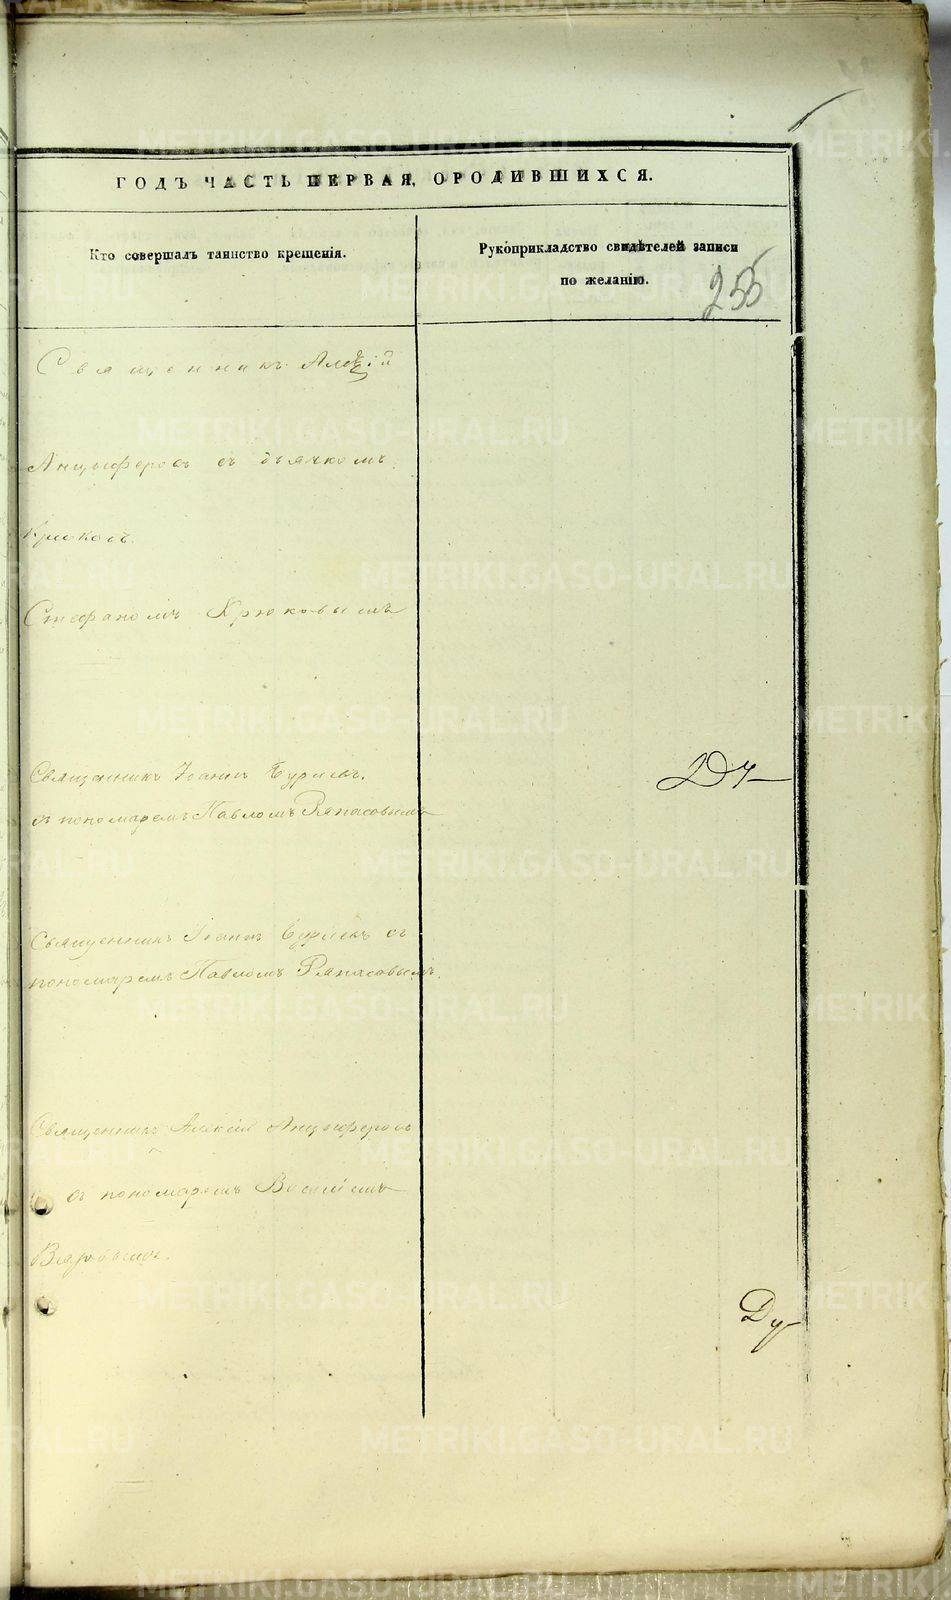 ГОДЪ ЧАСТЬ ПЕРВАЯ, ОРОДИВШИХСЯ.
Кто совершалъ таинство крещенія.
Рукоприкладство свидѣтелей записи
по желанію.
255
Священникъ Алексій
Анцыферовъ съ дьячкомъ
Крюков
Стефаномъ Крюковымъ
Священникъ Іоаннъ
съ пономаремъ Павломъ Ряпасовымъ
Священникъ Іоаннъ съ
пономаремъ Павломъ Ряпасовымъ.
Священникъ Алексій Анцыферовъ
съ пономаремъ
METRIKI.GASO-URAL.RU